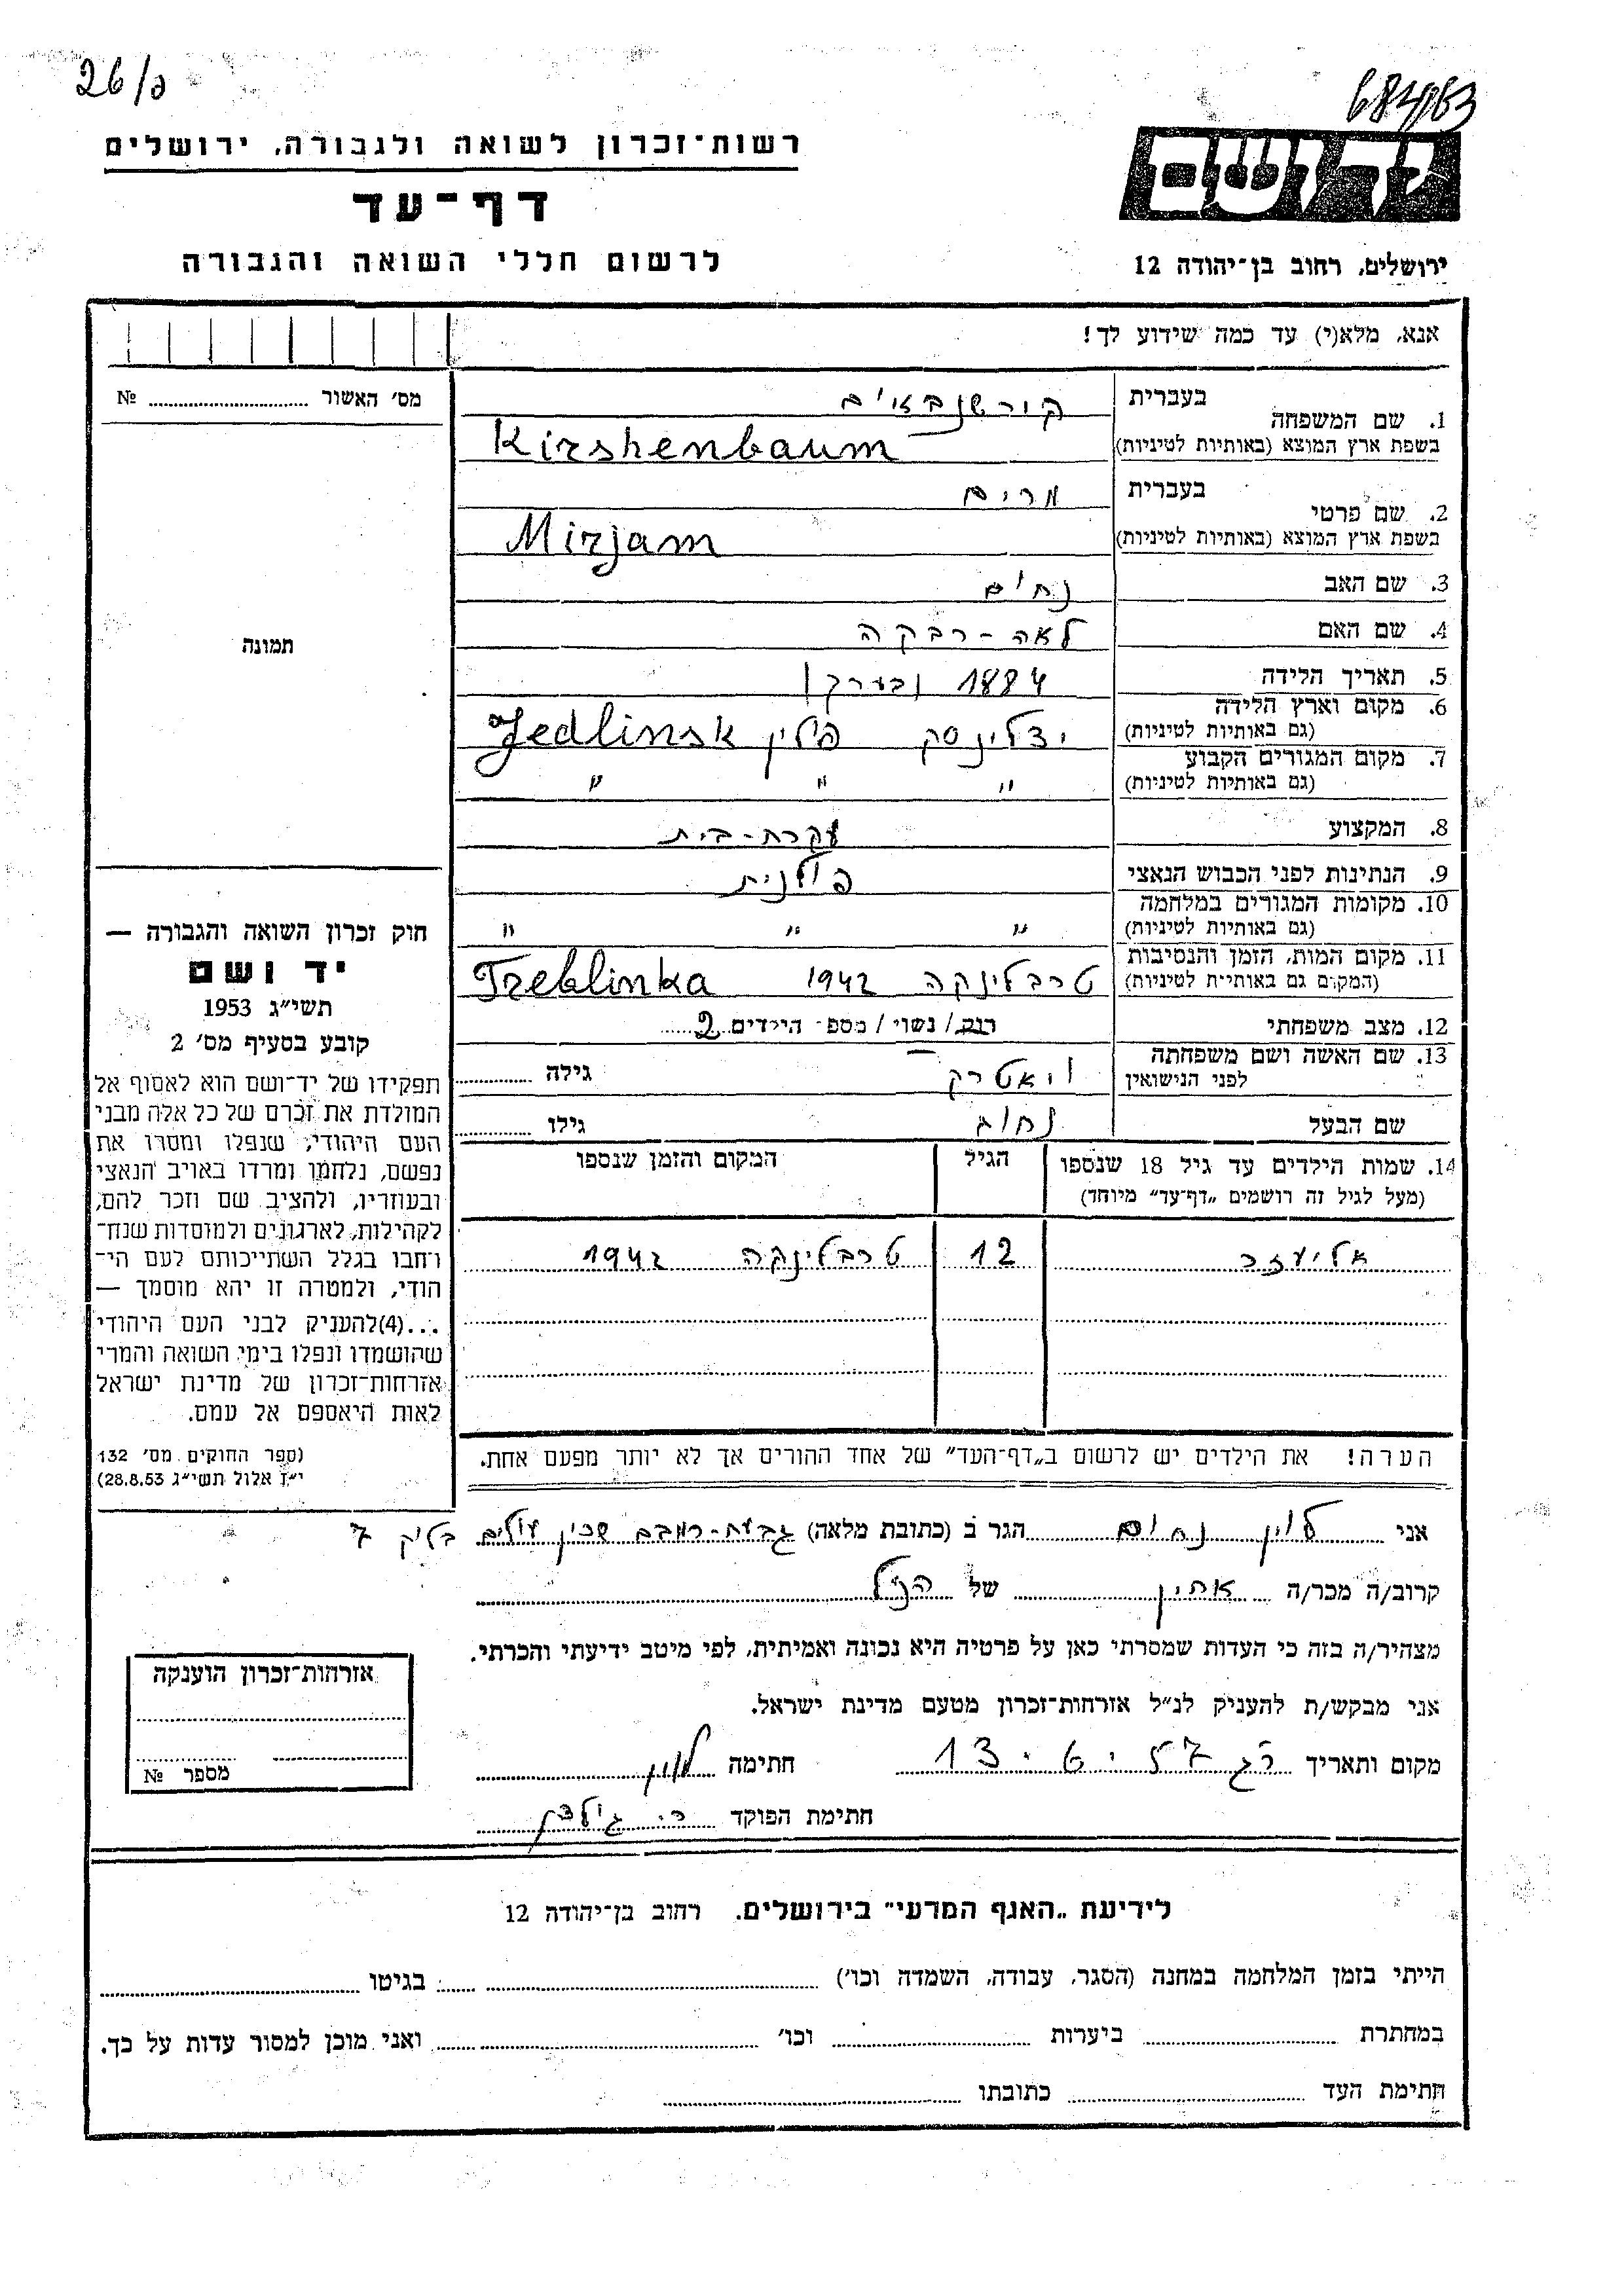 26/פ
684/63
רשות־זכרון לשואה ולגבורה, ירושלים
דף־עד
לרשום חללי השואה והגבורה
יד ושם
ירושלים, רחוב בן־יהודה 12
אנא, מלא(י) עד כמה שידוע לך!
מס' האשור № ........
תמונה
1. שם המשפחה בעברית קירשנבאום
בשפת ארץ המוצא (באותיות לטיניות) Kirshenbaum
2. שם פרטי בעברית מרים
בשפת ארץ המוצא (באותיות לטיניות) Mirjam
3. שם האב נחום
4. שם האם לאה-רבקה
5. תאריך הלידה 1884 (בערך)
6. מקום וארץ הלידה (גם באותיות לטיניות) ידלינסק פולין Jedlinsk
7. מקום המגורים הקבוע (גם באותיות לטיניות) " " "
8. המקצוע עקרת-בית
9. הנתינות לפני הכבוש הנאצי פולנית
10. מקומות המגורים במלחמה (גם באותיות לטיניות) " " "
11. מקום המות, הזמן והנסיבות (המקום גם באותיות לטיניות) טרבלינקה 1942 Treblinka
12. מצב משפחתי רוק/ נשוי / מספר הילדים 2
13. שם האשה ושם משפחתה לפני הנישואין גילה ........
שם הבעל גילו ........
14. שמות הילדים עד גיל 18 שנספו
(מעל לגיל זה רושמים „דף־עד" מיוחד)
הגיל
המקום והזמן שנספו
אליעזר 12 טרבלינקה 1942
הערה! את הילדים יש לרשום ב„דף־העד" של אחד ההורים אך לא יותר מפעם אחת.
חוק זכרון השואה והגבורה —
יד ושם
תשי"ג 1953
קובע בסעיף מס' 2
תפקידו של יד־ושם הוא לאסוף אל
המולדת את זכרם של כל אלה מבני
העם היהודי, שנפלו ומסרו את
נפשם, נלחמו ומרדו באויב הנאצי
ובעוזריו, ולהציב שם וזכר להם,
לקהילות, לארגונים ולמוסדות שנח־
רחבו בגלל השתייכותם לעם הי־
הודי, ולמטרה זו יהא מוסמך —
...(4) להעניק לבני העם היהודי
שהושמדו ונפלו בימי השואה והמרי
אזרחות־זכרון של מדינת ישראל
לאות היאספם אל עמם.
(ספר החוקים מס' 132
י"ז אלול תשי"ג 28.8.53)
אני לוין נחום הגר ב (כתובת מלאה) גבעת-רמבם שכון עולים בלוק 7
קרוב/ה מכר/ה אחין של הנ"ל
מצהיר/ה בזה כי העדות שמסרתי כאן על פרטיה היא נכונה ואמיתית, לפי מיטב ידיעתי והכרתי.
אני מבקש/ת להעניק לנ"ל אזרחות־זכרון מטעם מדינת ישראל.
מקום ותאריך רג 13.6.57 חתימה לוין
חתימת הפוקד
אזרחות־זכרון הוענקה
מספר №
לידיעת „האגף המדעי" בירושלים. רחוב בן־יהודה 12
הייתי בזמן המלחמה במחנה (הסגר, עבודה, השמדה וכו') ........ בגיטו ........
במחתרת ........ ביערות ........ וכו' ........ ואני מוכן למסור עדות על כך.
חתימת העד ........ כתובתו ........